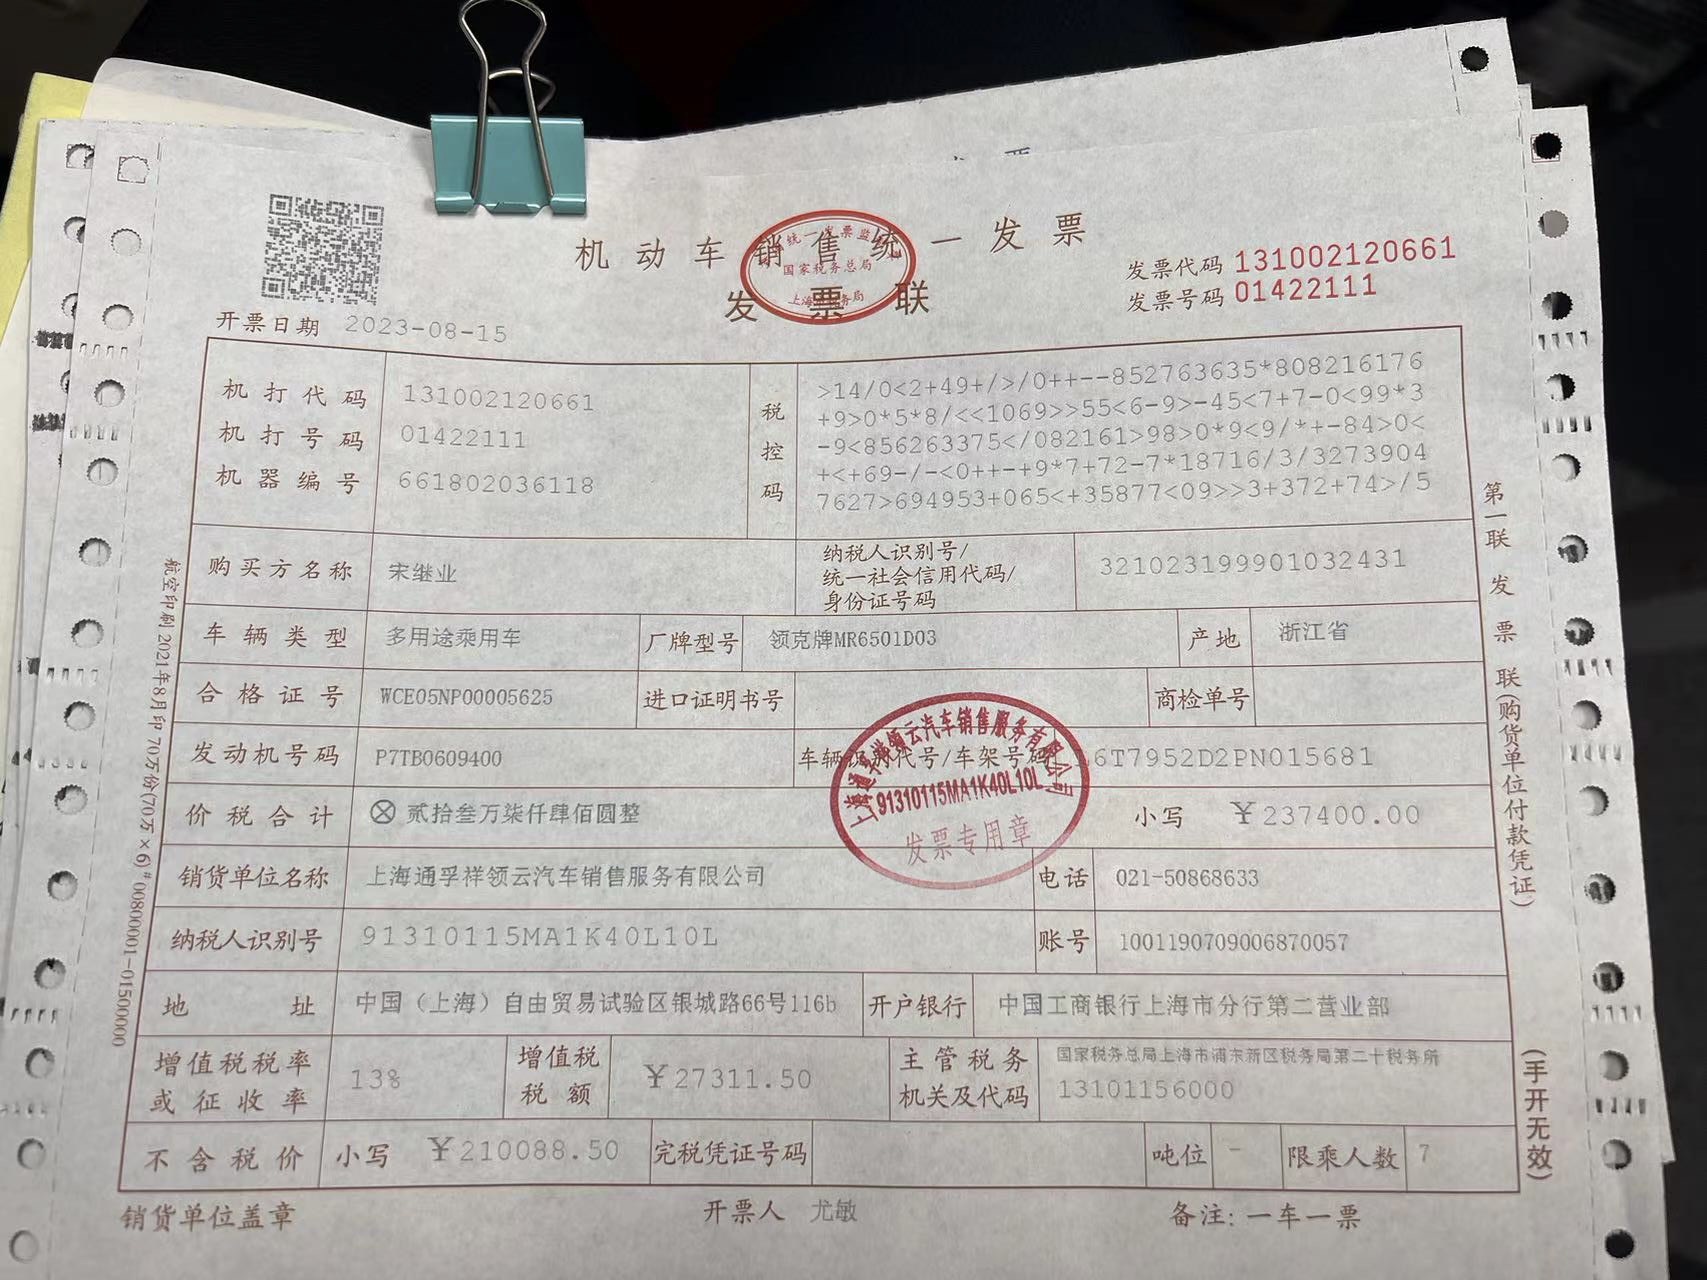 机动车销售统一发票
发票联
统一发票监
国家税务总局
上海 务局
发票代码 131002120661
发票号码 01422111
开票日期 2023-08-15
机打代码 131002120661
机打号码 01422111
机器编号 661802036118
税控码
>14/0<2+49+/>/0++--852763635*808216176
+9>0*5*8/<<1069>>55<6-9>-45<7+7-0<99*3
-9<856263375</082161>98>0*9<9/*+-84>0<
+<+69-/-<0++-+9*7+72-7*18716/3/3273904
7627>694953+065<+35877<09>>3+372+74>/5
购买方名称 宋继业 纳税人识别号/
统一社会信用代码/
身份证号码 321023199901032431
车辆类型 多用途乘用车 厂牌型号 领克牌MR6501D03 产地 浙江省
合格证号 WCE05NP00005625 进口证明书号 商检单号
发动机号码 P7TB0609400 车辆 代号/车架号码 6T7952D2PN015681
价税合计 ⊗贰拾叁万柒仟肆佰圆整 小写 ¥237400.00
上海通孚祥领云汽车销售服务有限公司
91310115MA1K40L10L
发票专用章
销货单位名称 上海通孚祥领云汽车销售服务有限公司 电话 021-50868633
纳税人识别号 91310115MA1K40L10L 账号 1001190709006870057
地址 中国（上海）自由贸易试验区银城路66号116b 开户银行 中国工商银行上海市分行第二营业部
增值税税率
或征收率 13% 增值税
税额 ¥27311.50 主管税务
机关及代码 国家税务总局上海市浦东新区税务局第二十税务所
13101156000
不含税价 小写 ¥210088.50 完税凭证号码 吨位 - 限乘人数 7
销货单位盖章 开票人 尤敏 备注:一车一票
航空印刷 2021年8月印 70万份(70万×6)# 00800001-01500000
第一联 发票联(购货单位付款凭证)
(手开无效)